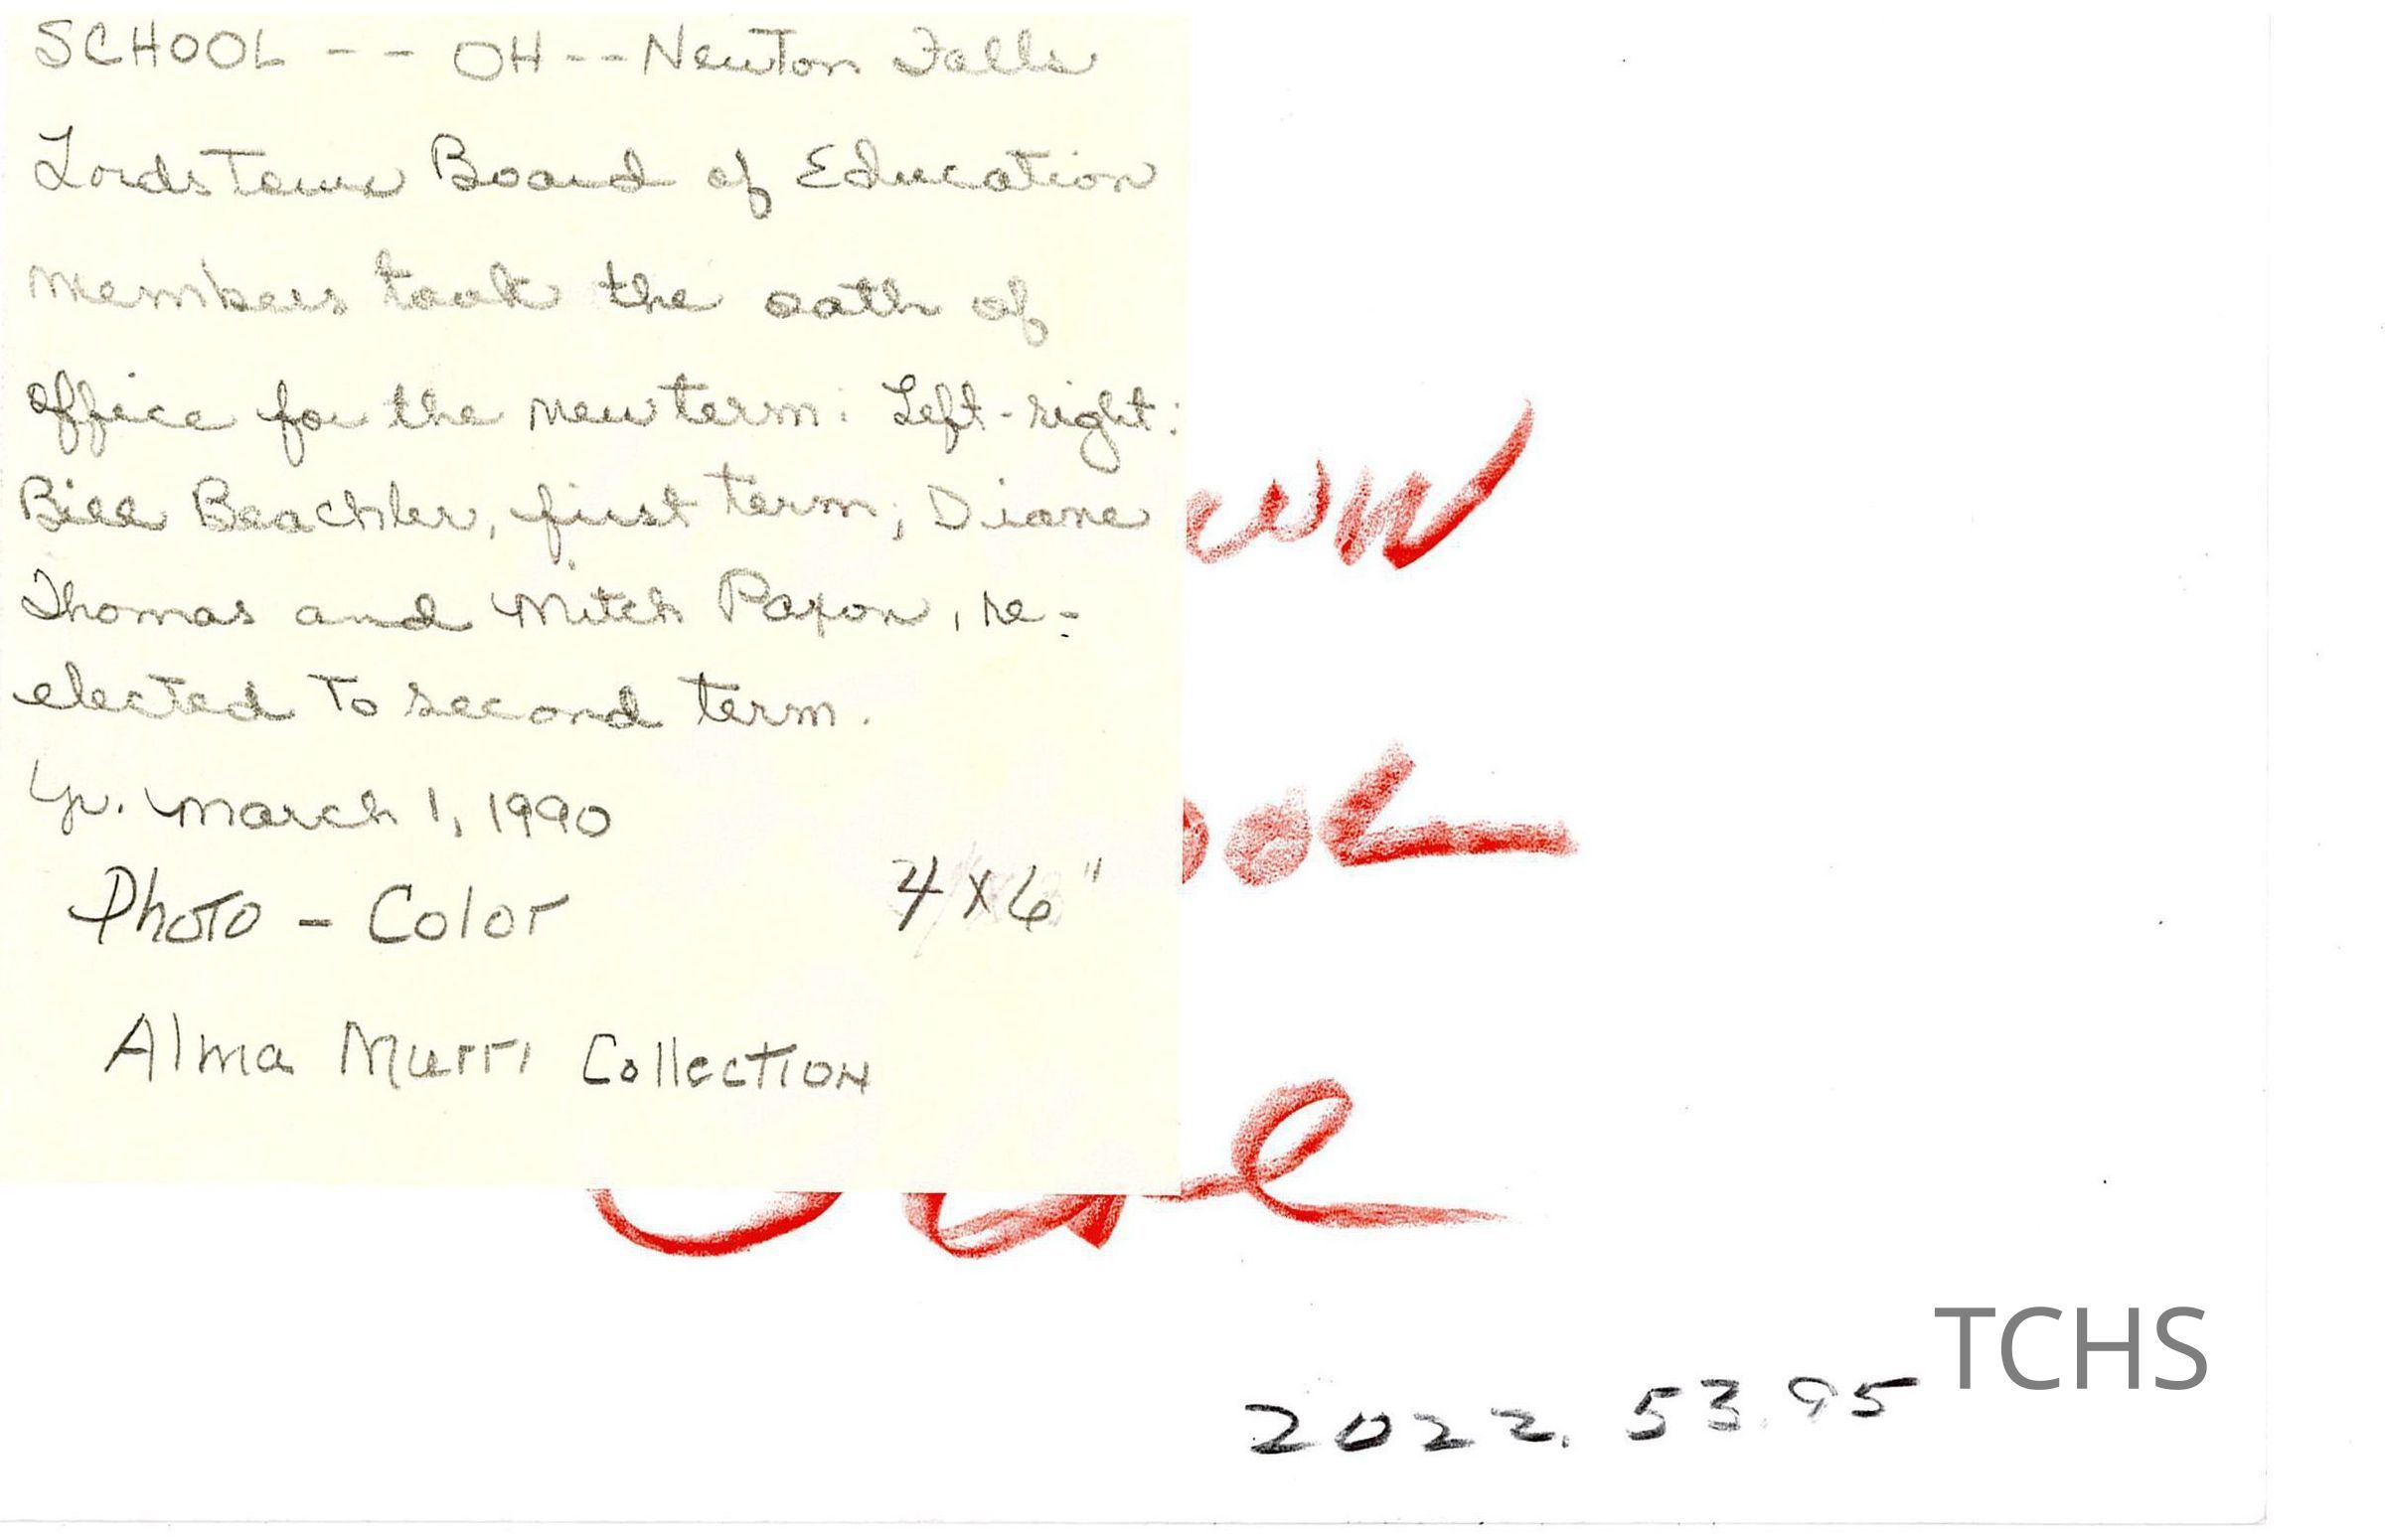 SCHOOL -- OH--Newton Falls
Lordstown Board of Education
members took the oath of
office for the new term: Left-right:
Bill Beachler, first term; Diane
Thomas and Mitch Paxon, re-
elected to second term.
Yr. March 1, 1990
Photo - Color 4x6"
Alma Murri Collection
TCHS
2022.53.95